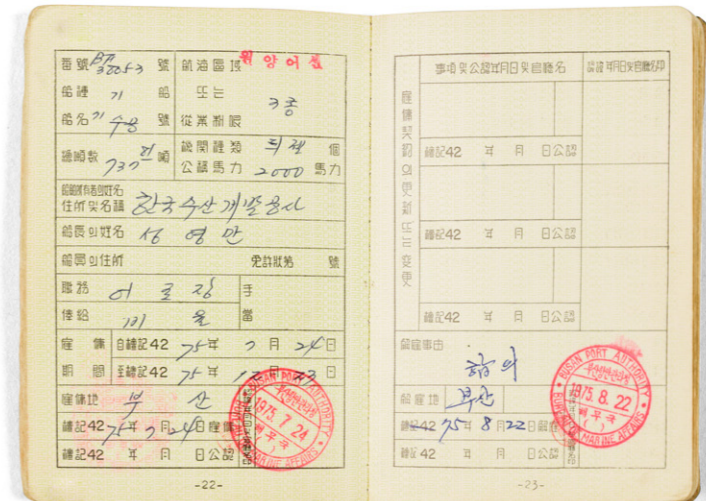 番號 BA 32053 號 航海區域 원양어선
船種 기 船 또는
船名 기 수용 號 從業制限 3종
總噸數 737 噸 機關種類 디젤 個
公稱馬力 2000 馬力
船舶所有者의姓名
住所및名稱 한국수산개발공사
船長의姓名 성영만
船員의住所 免許狀第 號
職務 어로장 手
俸給 비율 當
雇傭 自檀記42 75年 7月 24日
期間 至檀記42 75年 12月 23日
雇傭地 부산
檀記42 75年 7月 24日雇傭
檀記42 年 月 日公認
BUSAN PORT AUTHORITY
1975. 7. 24
해무국
BUREAU OF MARINE AFFAIRS
-22-
事項및公認年月日및官職名
雇傭契約의更新또는變更
檀記42 年 月 日公認
檀記42 年 月 日公認
檀記42 年 月 日公認
解雇事由 合의
解雇地 부산
檀記42 75年 8月 22日
檀記42 年 月 日公認
BUSAN PORT AUTHORITY
부산항만관리청
1975. 8. 22
해무국
BUREAU OF MARINE AFFAIRS
-23-